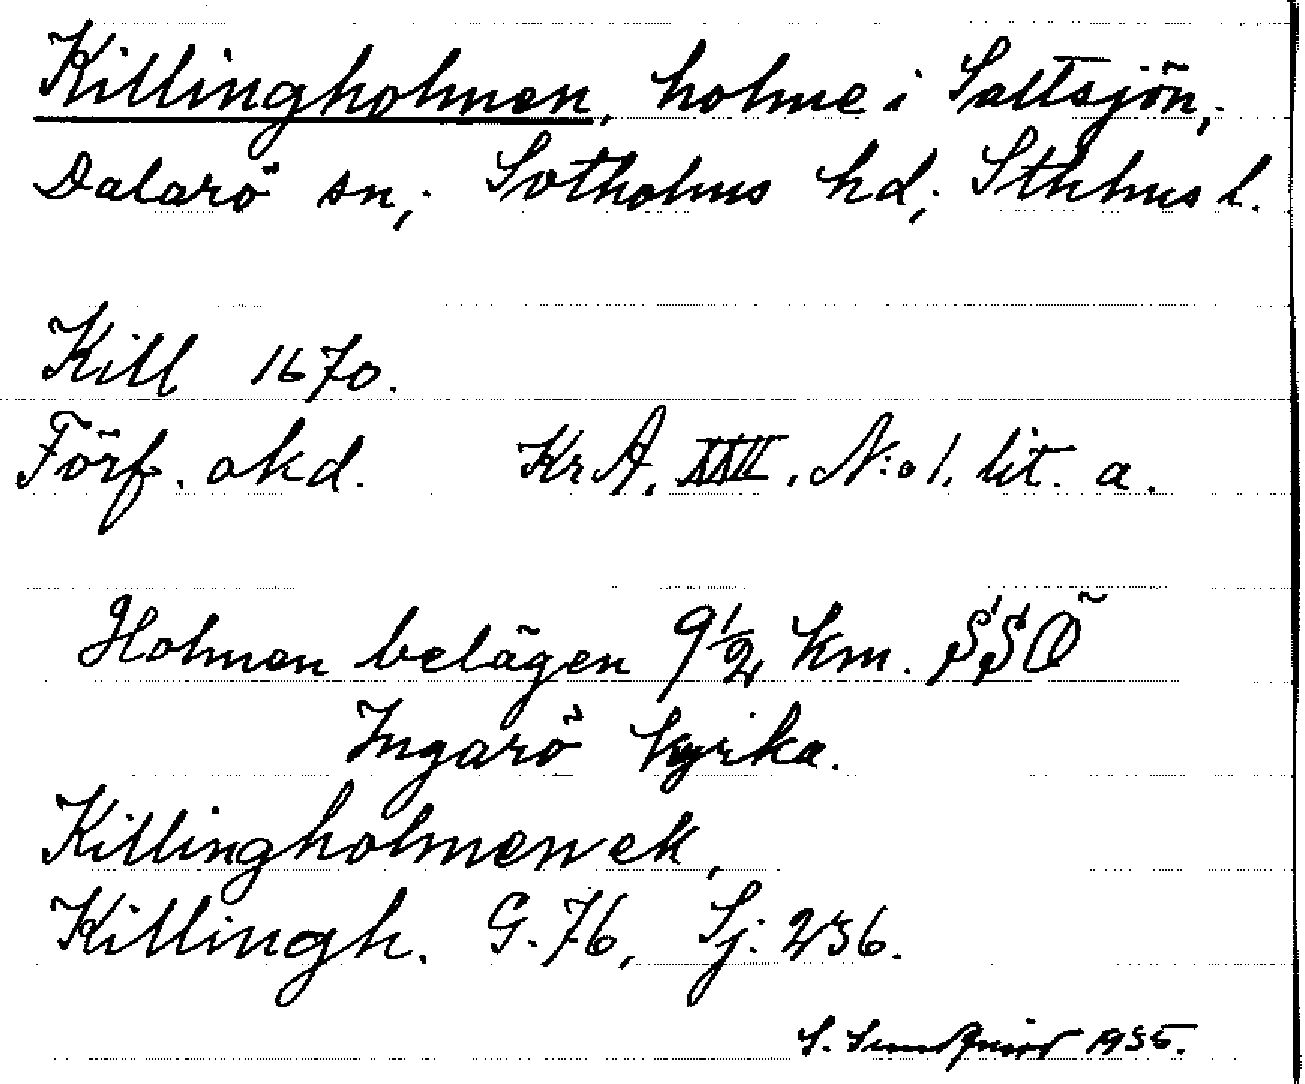 Killingholmen, holme i Saltsjön,
Dalarö sn, Sotholms hd, Sthlms l.
Kill 1670.
Förf. okd. KrA, XXV, N:o 1, lit. a.
Holmen belägen 9 1/2 km. SSÖ
Ingarö kyrka.
Killingholmen ek,
Killingh. G. 76, Sj: 256.
S. 1935.